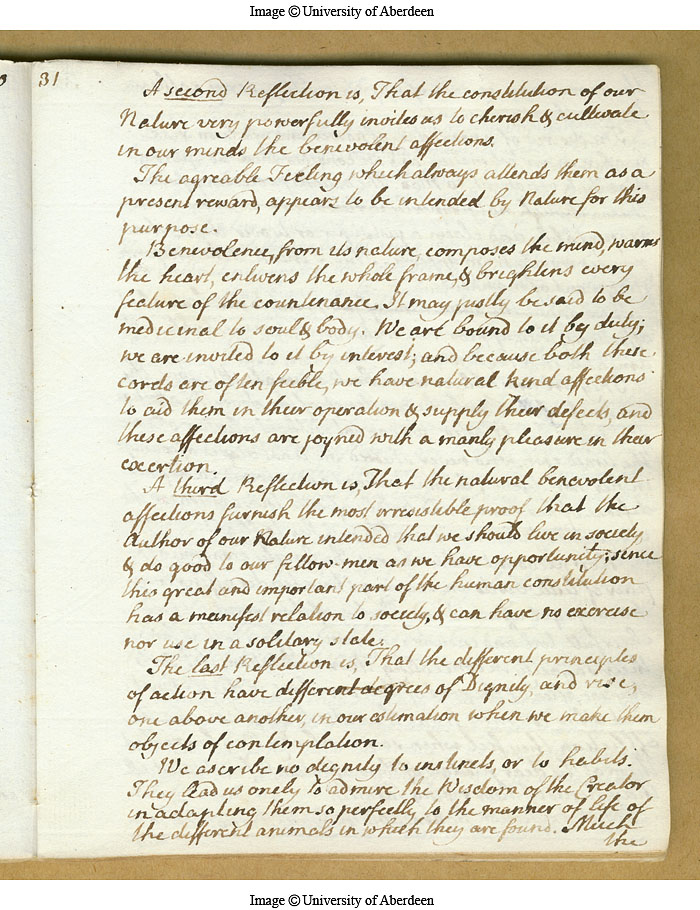 Image © University of Aberdeen
31
A second Reflection is, That the constitution of our
Nature very powerfully invites us to cherish & cultivate
in our minds the benevolent affections.
The agreable Feeling which always attends them as a
present reward, appears to be intended by Nature for this
purpose.
Benevolence, from its nature, composes the mind, warms
the heart, enlivens the whole frame, & brightens every
feature of the countenance. It may justly be said to be
medicinal to soul & body. We are bound to it by duty;
we are invited to it by interest; and because both these
cords are often feeble, we have natural kind affections
to aid them in their operation & supply their defects, and
these affections are joyned with a manly pleasure in their
exertion.
A third Reflection is, That the natural benevolent
affections furnish the most irresistible proof that the
Author of our Nature intended that we should live in society,
& do good to our fellow-men as we have opportunity; since
this great and important part of the human constitution
has a manifest relation to society, & can have no exercise
nor use in a solitary state.
The last Reflection is, That the different principles
of action have different degrees of Dignity, and rise,
one above another, in our estimation when we make them
objects of contemplation.
We ascribe no dignity to instincts, or to habits.
They lead us onely to admire the Wisdom of the Creator
in adapting them so perfectly to the manner of life of
the different animals in which they are found. Much
the
Image © University of Aberdeen